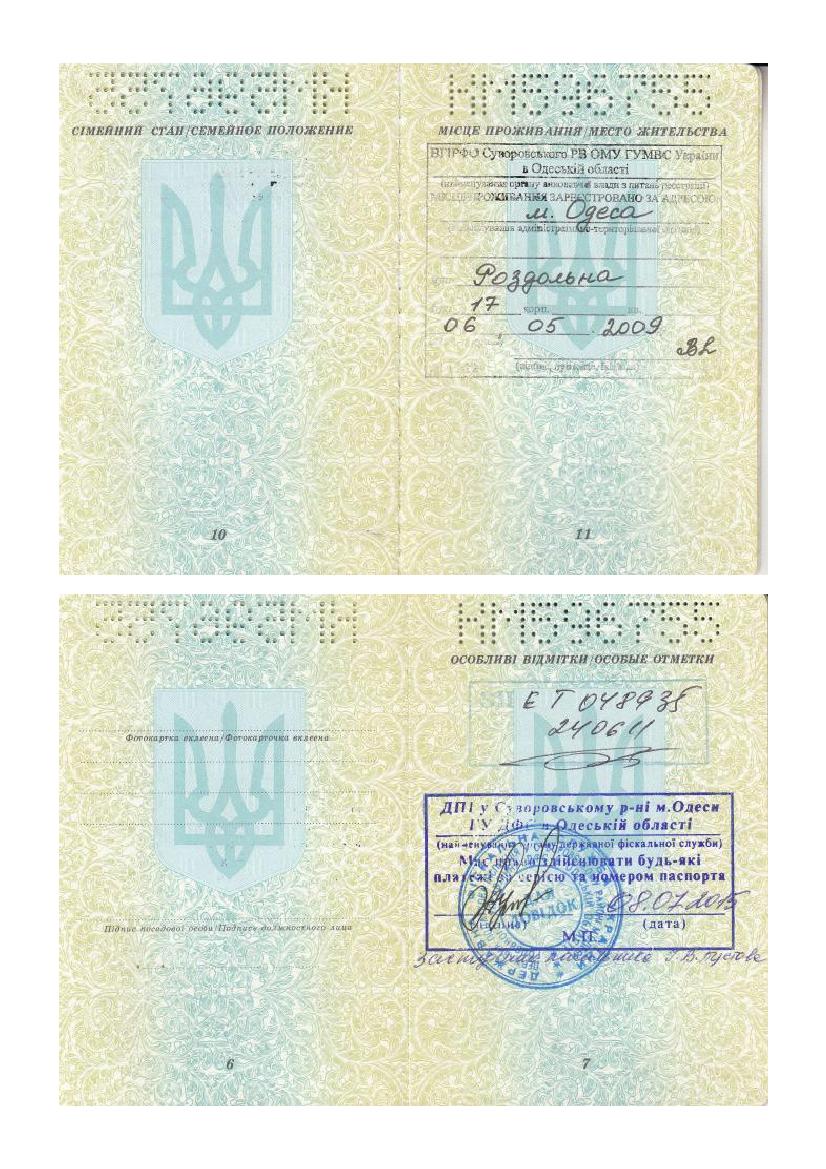 СІМЕЙНИЙ СТАН/СЕМЕЙНОЕ ПОЛОЖЕНИЕ
10
НМ596755
МІСЦЕ ПРОЖИВАННЯ/МЕСТО ЖИТЕЛЬСТВА
ВГІРФО Суворовського РВ ОМУ ГУМВС України
в Одеській області
(найменування органу виконавчої влади з питань реєстрації)
МІСЦЕ ПРОЖИВАННЯ ЗАРЕЄСТРОВАНО ЗА АДРЕСОЮ
м. Одеса
(найменування адміністративно-територіальної одиниці)
Роздольна
17 корп. кв.
06 05 2009
11
Фотокартка вклеєна/Фотокарточка вклеена
Підпис посадової особи/Подпись должностного лица
6
НМ596755
ОСОБЛИВІ ВІДМІТКИ/ОСОБЫЕ ОТМЕТКИ
ЕТ 048935
240611
ДПІ у Суворовському р-ні м.Одеси
ГУ ДФС в Одеській області
(найменування органу державної фіскальної служби)
Має право здійснювати будь-які
платежі за серією та номером паспорта
08.07.2015
(підпис) (дата)
М.П.
ДОВІДОК
7